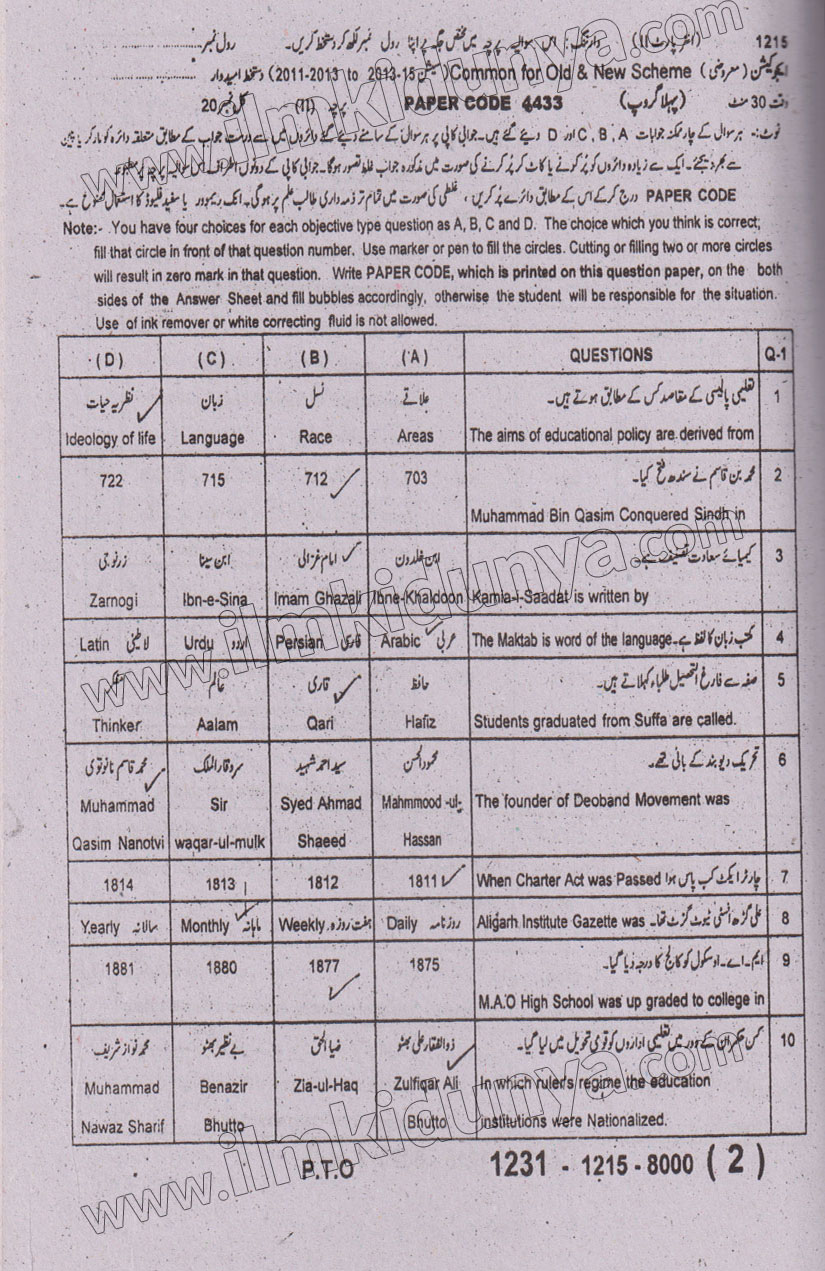 1215 (انٹر پارٹ II) وارننگ: اس سوالیہ پرچہ میں مختص جگہ پر اپنا رول نمبر لکھ کر دستخط کریں۔ رول نمبر
ایجوکیشن (معروضی) Common for Old & New Scheme (سیشن 2013-15 to 2011-2013) دستخط امیدوار
وقت 30 منٹ (پہلا گروپ) PAPER CODE 4433 پرچہ (II) کل نمبر 20
نوٹ:- ہر سوال کے چار ممکنہ جوابات C, B, A اور D دیئے گئے ہیں۔ جوابی کاپی پر ہر سوال کے سامنے دیئے گئے دائروں میں سے درست جواب کے مطابق متعلقہ دائرہ کو مارکر یا پین
سے بھر دیجئے۔ ایک سے زیادہ دائروں کو پُر کرنے یا کاٹ کر پُر کرنے کی صورت میں مذکورہ جواب غلط تصور ہوگا۔ جوابی کاپی کے دونوں اطراف اس سوالیہ پرچہ پر مطبوعہ
PAPER CODE درج کر کے اس کے مطابق دائرے پُر کریں، غلطی کی صورت میں تمام تر ذمہ داری طالب علم پر ہوگی۔ انک ریموور یا سفید فلیوڈ کا استعمال ممنوع ہے۔
Note:- You have four choices for each objective type question as A, B, C and D. The choice which you think is correct;
fill that circle in front of that question number. Use marker or pen to fill the circles. Cutting or filling two or more circles
will result in zero mark in that question. Write PAPER CODE, which is printed on this question paper, on the both
sides of the Answer Sheet and fill bubbles accordingly, otherwise the student will be responsible for the situation.
Use of ink remover or white correcting fluid is not allowed.
(D) (C) (B) (A) QUESTIONS Q-1
نظریہ حیات زبان نسل علاقے تعلیمی پالیسی کے مقاصد کس کے مطابق ہوتے ہیں۔ 1
Ideology of life Language Race Areas The aims of educational policy are derived from
722 715 712 703 محمد بن قاسم نے سندھ فتح کیا۔ 2
Muhammad Bin Qasim Conquered Sindh in
زرنوجی ابن سینا امام غزالی ابن خلدون کیمیائے سعادت تصنیف ہے۔ 3
Zarnogi Ibn-e-Sina Imam Ghazali Ibne-Khaldoon Kamia-i-Saadat is written by
Latin لاطینی Urdu اردو Persian فارسی Arabic عربی The Maktab is word of the language. مکتب زبان کا لفظ ہے۔ 4
مفکر عالم قاری حافظ صفہ سے فارغ التحصیل طلباء کہلاتے ہیں۔ 5
Thinker Aalam Qari Hafiz Students graduated from Suffa are called.
محمد قاسم نانوتوی سر وقار الملک سید احمد شہید محمود الحسن تحریک دیوبند کے بانی تھے۔ 6
Muhammad Sir Syed Ahmad Mahmmood -ul- The founder of Deoband Movement was
Qasim Nanotvi waqar-ul-mulk Shaeed Hassan
1814 1813 1812 1811 When Charter Act was Passed چارٹر ایکٹ کب پاس ہوا 7
Yearly سالانہ Monthly ماہانہ Weekly ہفت روزہ Daily روزنامہ Aligarh Institute Gazette was علی گڑھ انسٹی ٹیوٹ گزٹ تھا۔ 8
1881 1880 1877 1875 ایم۔اے۔او سکول کو کالج کا درجہ دیا گیا۔ 9
M.A.O High School was up graded to college in
محمد نواز شریف بے نظیر بھٹو ضیا الحق ذوالفقار علی بھٹو کس حکمران کے دور میں تعلیمی اداروں کو قومی تحویل میں لیا گیا۔ 10
Muhammad Benazir Zia-ul-Haq Zulfiqar Ali In which ruler's regime the education
Nawaz Sharif Bhutto Bhutto institutions were Nationalized.
P.T.O 1231 - 1215 - 8000 (2)
www.ilmkidunya.com
www.ilmkidunya.com
www.ilmkidunya.com